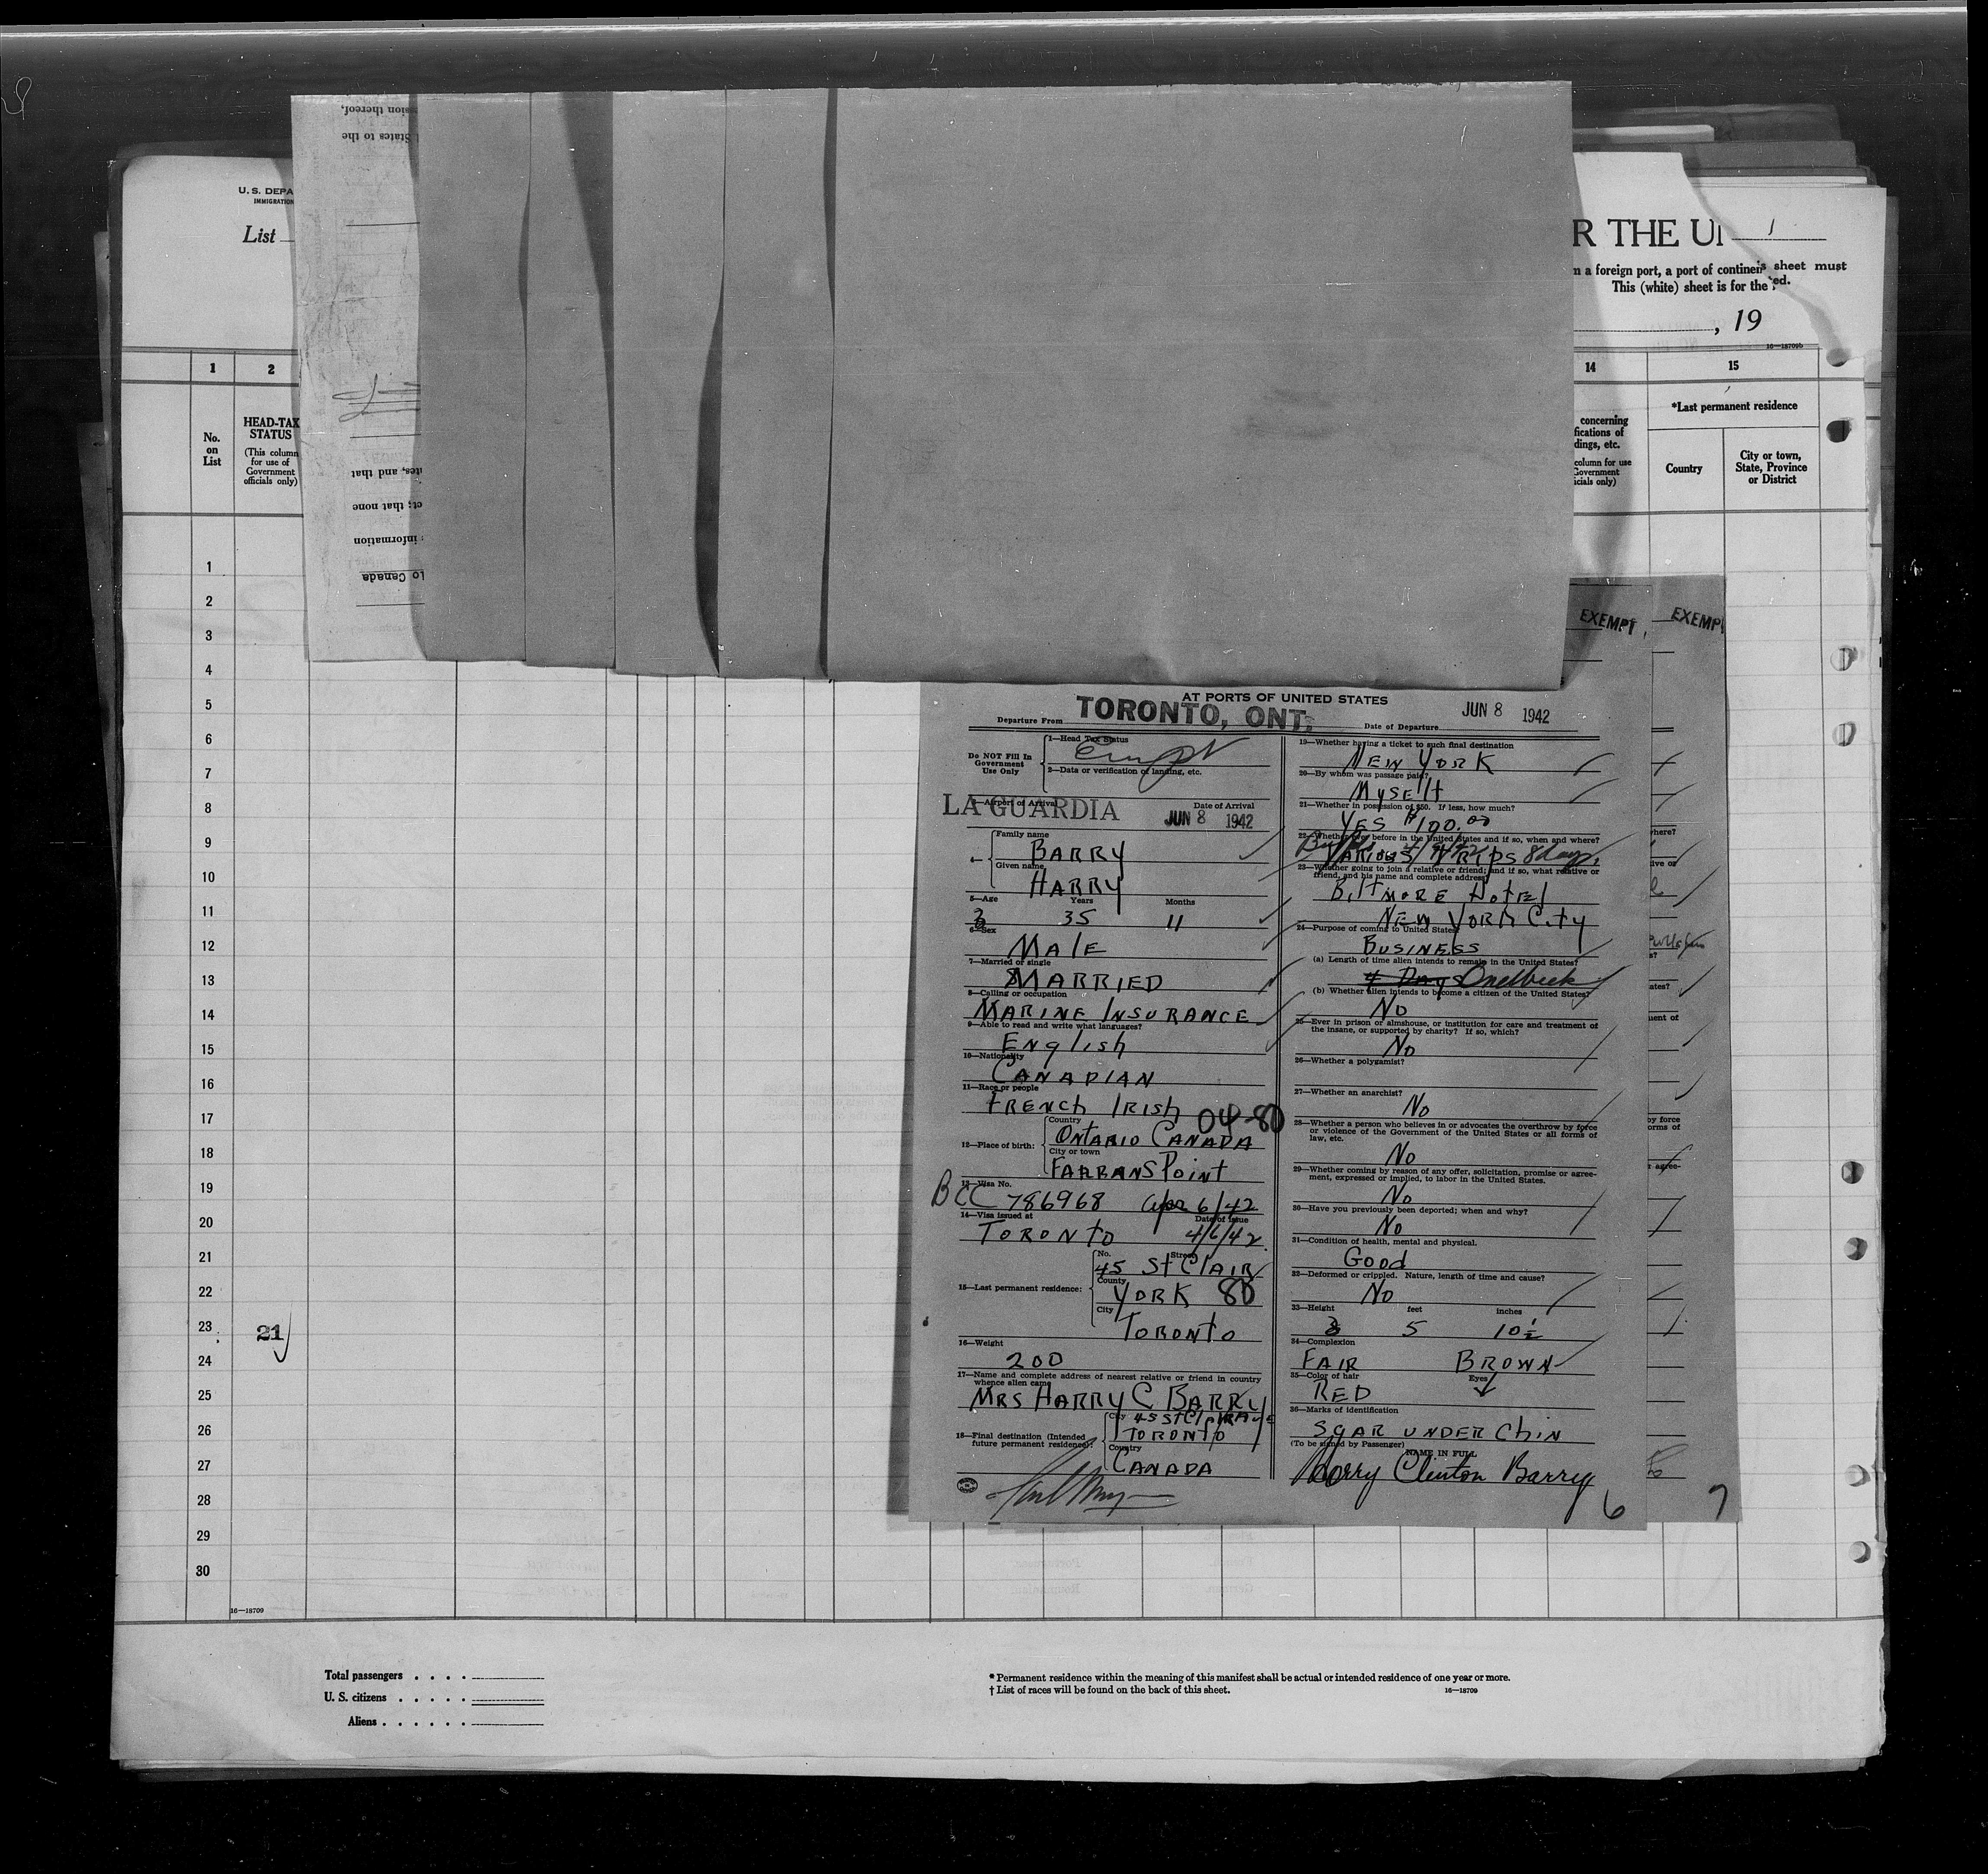 U. S. DEPA
IMMIGRATION
List
R THE UN 1
m a foreign port, a port of continen s sheet must
This (white) sheet is for the ed.
, 19
16—18709b
1 2 14 15
No. on List
HEAD-TAX STATUS
(This column for use of Government officials only)
concerning
fications of
dings, etc.
column for use
Government
icials only)
*Last permanent residence
Country
City or town, State, Province or District
sion thereof,
States to the
tes, and that
ct; that none
information
to Canada
1
2
3
4
5
6
7
8
9
10
11
12
13
14
15
16
17
18
19
20
21
22
23 21
24
25
26
27
28
29
30
16—18709
EXEMPT EXEMPT
AT PORTS OF UNITED STATES
Departure From TORONTO, ONT. Date of Departure JUN 8 1942
Do NOT Fill In Government Use Only
1—Head Tax Status
2—Data or verification of landing, etc.
3—Airport of Arrival LA GUARDIA Date of Arrival JUN 8 1942
4— Family name BARRY
Given name HARRY
5—Age Years 35 Months 11
6—Sex MALE
7—Married or single MARRIED
8—Calling or occupation MARINE INSURANCE
9—Able to read and write what languages? ENGLISH
10—Nationality CANADIAN
11—Race or people FRENCH IRISH 04-80
12—Place of birth: Country ONTARIO CANADA
City or town FARRANS POINT
13—Visa No. BCC 786968 Apr 6/42
14—Visa issued at TORONTO Date of Issue 4/6/42
15—Last permanent residence: No. 45 Street ST CLAIR
County YORK 80
City TORONTO
16—Weight 200
17—Name and complete address of nearest relative or friend in country whence alien came
MRS HARRY C BARRY
45 ST CLAIR AVE
18—Final destination (Intended future permanent residence): City TORONTO
Country CANADA
19—Whether having a ticket to such final destination
NEW YORK
20—By whom was passage paid?
MYSELF
21—Whether in possession of $50. If less, how much?
YES $100.00
22—Whether ever before in the United States and if so, when and where?
VARIOUS TRIPS 8 days
23—Whether going to join a relative or friend; and if so, what relative or friend, and his name and complete address
BILTMORE HOTEL
NEW YORK CITY
24—Purpose of coming to United States
BUSINESS
(a) Length of time alien intends to remain in the United States?
4 Days One Week
(b) Whether alien intends to become a citizen of the United States?
NO
25—Ever in prison or almshouse, or institution for care and treatment of the insane, or supported by charity? If so, which?
NO
26—Whether a polygamist?
27—Whether an anarchist?
NO
28—Whether a person who believes in or advocates the overthrow by force or violence of the Government of the United States or all forms of law, etc.
NO
29—Whether coming by reason of any offer, solicitation, promise or agreement, expressed or implied, to labor in the United States.
NO
30—Have you previously been deported; when and why?
NO
31—Condition of health, mental and physical.
GOOD
32—Deformed or crippled. Nature, length of time and cause?
NO
33—Height feet 5 inches 10½
34—Complexion FAIR BROWN
35—Color of hair RED Eyes
36—Marks of identification
SCAR UNDER CHIN
(To be signed by Passenger) NAME IN FULL
Harry Clinton Barry
6 7
Total passengers . . . .
U. S. citizens . . . . .
Aliens . . . . . .
* Permanent residence within the meaning of this manifest shall be actual or intended residence of one year or more.
† List of races will be found on the back of this sheet. 16—18709